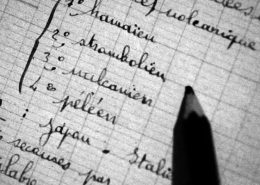 volcanique
hawaïen
2º strombolien
3º vulcanien
4º péléen
: Japon . Itali
secousses par